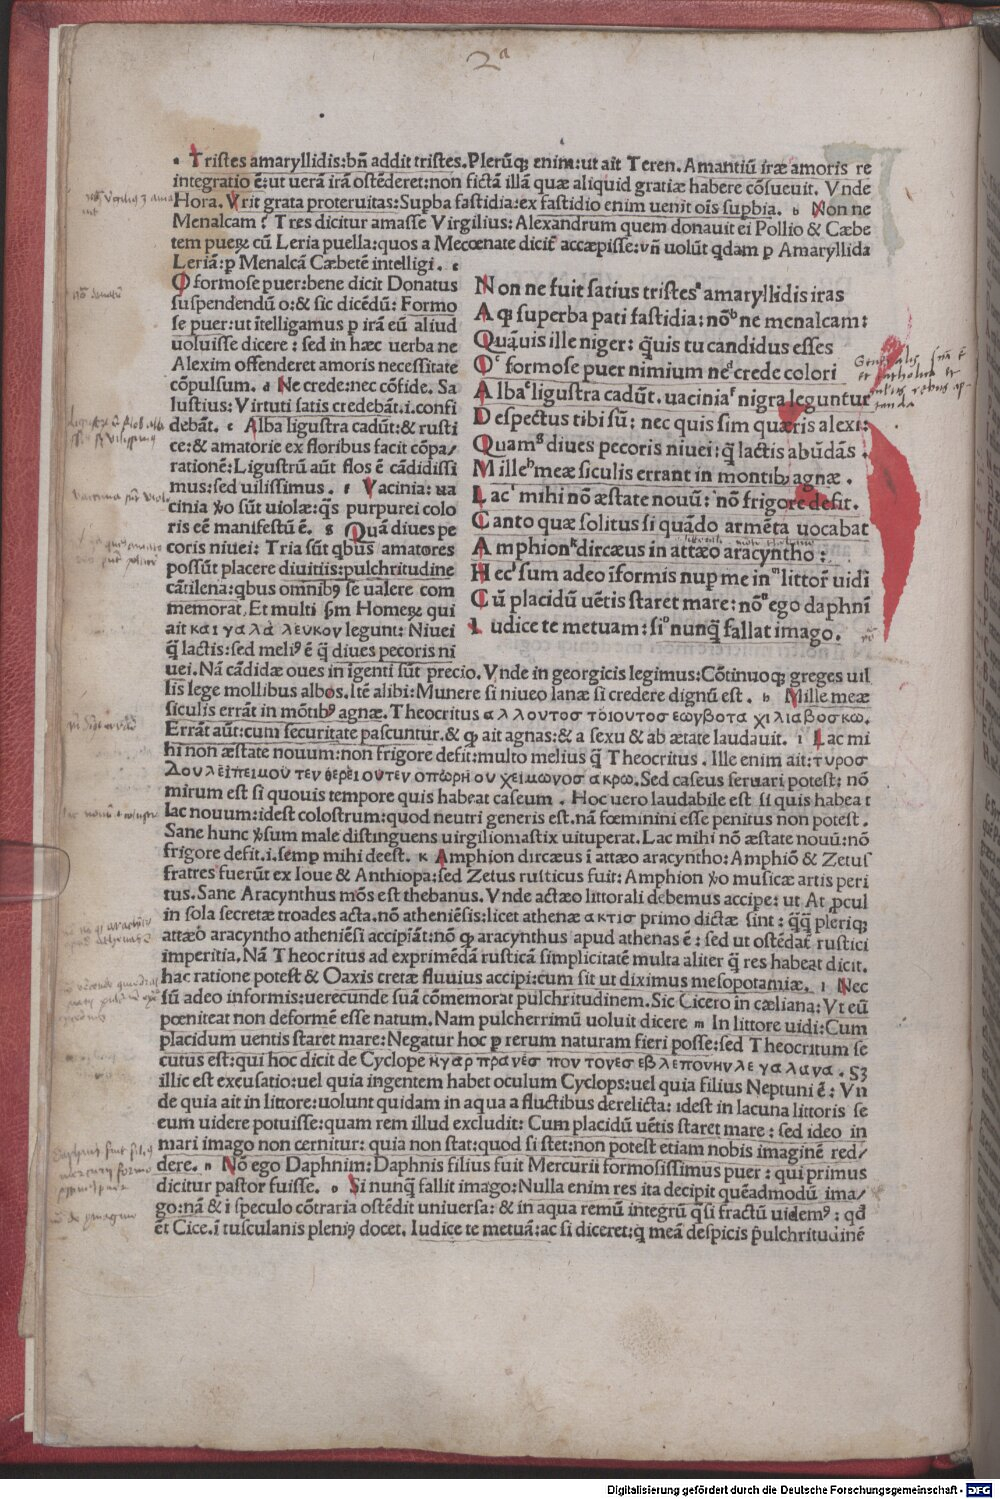 2ª
. Tristes amaryllidis:bñ addit tristes.Plerūq; enim:ut ait Teren.Amantiū iræ amoris re
integratio ē:ut uerā irā ostēderet:non fictā illā quæ aliquid gratiæ habere cōsueuit. Vnde
Hora. Vrit grata proteruitas:Supba fastidia:ex fastidio enim uenit oīs supbia. b Non ne
Menalcam? Tres dicitur amasse Virgilius:Alexandrum quem donauit ei Pollio & Cæbe
tem pueꝝ cū Leria puella:quos a Mecœnate dicit̄ accæpisse:vñ uolūt qdam p Amaryllida
Leriā:p Menalcā Cæbetē intelligi. c
O formose puer:bene dicit Donatus
suspendendū o:& sic dicēdū: Formo
se puer:ut ītelligamus p irā eū aliud
uoluisse dicere : sed in hæc uerba ne
Alexim offenderet amoris necessitate
cōpulsum. d Ne crede:nec cōfide. Sa
lustius: Virtuti satis credebāt.i.confi
debāt. e Alba ligustra cadūt:& rusti
ce:& amatorie ex floribus facit cōpa/
rationē:Ligustrū aūt flos ē cādidissi
mus:sed uilissimus. f Vacinia: ua
cinia ꝟo sūt uiolæ:q̄s purpurei colo
ris eē manifestū ē. g Quā diues pe
coris niuei: Tria sūt qbus amatores
possūt placere diuitiis:pulchritudine
cātilena:qbus omnibꝰ se ualere com
memorat. Et multi ſm Homeꝝ qui
ait και γαλα λευκον legunt: Niuei
q̄ lactis:sed meliꝰ ē q̄ diues pecoris ni
Non ne fuit satius tristesª amaryllidis iras
A qꝫ superba pati fastidia:nōᵇ ne menalcam:
Quāuis ille niger: q̄uis tu candidus esses
Oᶜ formose puer nimium neᵈ crede colori
Albaᵉ ligustra cadūt. uaciniaᶠ nigra leguntur
Despectus tibi sū: nec quis sim quæris alexi:
Quamᵍ diues pecoris niuei:q̄ lactis abūdās .
Milleʰ meæ siculis errant in montibꝫ agnæ.
Lacⁱ mihi nō æstate nouū: nō frigore defit.
Canto quæ solitus si quādo armēta uocabat
Amphionᵏ dircæus in attæo aracyntho:
Hecˡ sum adeo īformis nup me inᵐ littor̄ uidi
Cū placidū uētis staret mare:nōⁿ ego daphnī
Iudice te metuam:siᵒ nunq̄ fallat imago.
uei. Nā cādidæ oues in īgenti sūt precio. Vnde in georgicis legimus: Cōtinuoqꝫ greges uil
lis lege mollibus albos. Itē alibi:Munere si niueo lanæ si credere dignū est . h Mille meæ
siculis errāt in mōtibꝰ agnæ. Theocritus αλλουτοσ τοιουτοσ εωγβοτα χιλιαβοσκω.
Errāt aūt:cum securitate pascuntur.& qꝫ ait agnas:& a sexu & ab ætate laudauit. i Lac mi
hi non æstate nouum:non frigore defit:multo melius q̄ Theocritus . Ille enim ait:τυροσ
. Sed caseus seruari potest; nō
mirum est si quouis tempore quis habeat caseum . Hoc uero laudabile est si quis habea t
lac nouum:idest colostrum:quod neutri generis est.nā fœminini esse penitus non potest.
Sane hunc ꝟsum male distinguens uirgiliomastix uituperat. Lac mihi nō æstate nouū:nō
frigore defit.i.semp mihi deest. k Amphion dircæus ī attæo aracyntho: Amphiō & Zetus
fratres fuerūt ex Ioue & Anthiopa:sed Zetus rusticus fuit: Amphion ꝟo musicæ artis peri
tus. Sane Aracynthus mōs est thebanus. Vnde actæo littorali debemus accipe: ut At pcul
in sola secretæ troades acta.nō atheniēsis:licet athenæ ακτισ primo dictæ sint : q̄q̄ pleriqꝫ
attæo aracyntho atheniēsi accipiāt:nō qꝫ aracynthus apud athenas ē : sed ut ostēdat̄ rustici
imperitia. Nā Theocritus ad exprimēdā rusticā simplicitatē multa aliter q̄ res habeat dicit.
hac ratione potest & Oaxis cretæ fluuius accipi:cum sit ut diximus mesopotamiæ. l Nec
sū adeo informis:uerecunde suā cōmemorat pulchritudinem. Sic Cicero in cæliana: Vt eū
pœniteat non deformē esse natum. Nam pulcherrimū uoluit dicere m In littore uidi:Cum
placidum uentis staret mare: Negatur hoc p rerum naturam fieri posse:sed Theocritum se
cutus est:qui hoc dicit de Cyclope . Sꝫ
illic est excusatio:uel quia ingentem habet oculum Cyclops:uel quia filius Neptuni ē: Vn
de quia ait in littore:uolunt quidam in aqua a fluctibus derelicta: idest in lacuna littoris se
eum uidere potuisse:quam rem illud excludit: Cum placidū uētis staret mare : sed ideo in
mari imago non cernitur: quia non stat:quod si stet:non potest etiam nobis imaginē red/
dere. n Nō ego Daphnim: Daphnis filius fuit Mercurii formosissimus puer : qui primus
dicitur pastor fuisse. o Si nunq̄ fallit imago:Nulla enim res ita decipit quēadmodū ima/
go:nā & ī speculo cōtraria ostēdit uniuersa: & in aqua remū integrū q̄si fractū uidemꝰ : qđ
ēt Cice.ī tusculanis pleniꝰ docet. Iudice te metuā:ac si diceret:q̄ meā despicis pulchritudinē
Digitalisierung gefördert durch die Deutsche Forschungsgemeinschaft - DFG